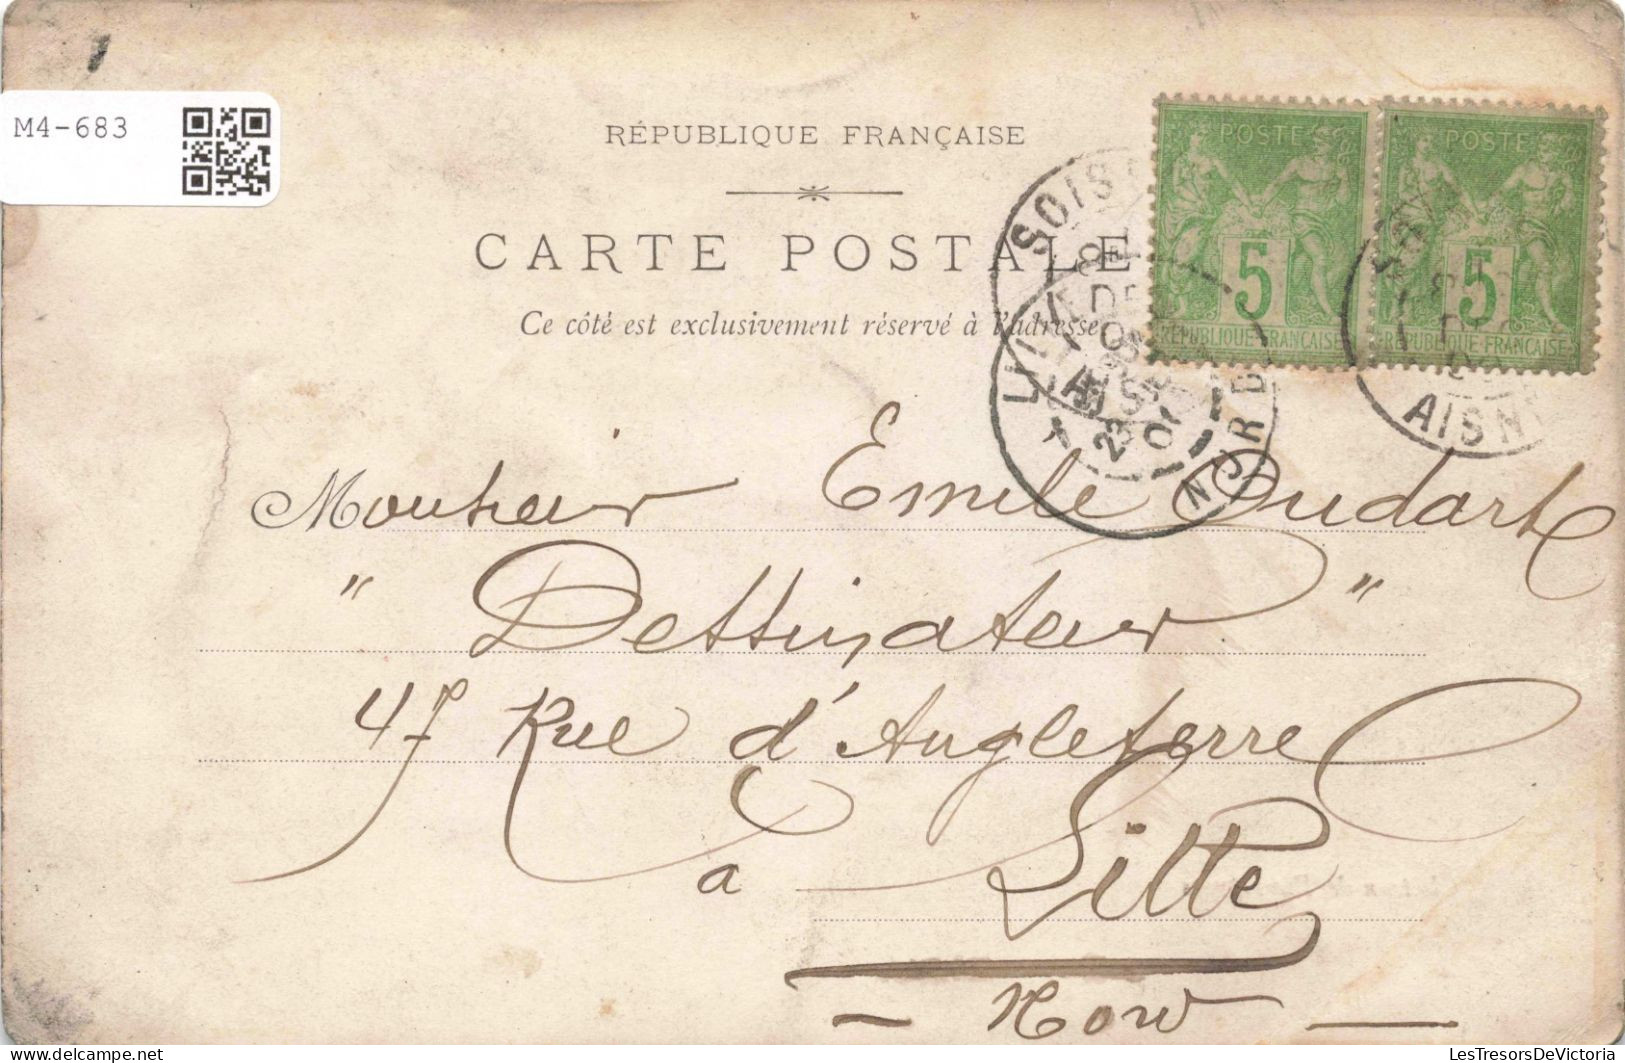 M4-683
RÉPUBLIQUE FRANÇAISE
CARTE POSTALE
Ce côté est exclusivement réservé à l'adresse
POSTE
5
RÉPUBLIQUE FRANÇAISE
POSTE
5
RÉPUBLIQUE FRANÇAISE
AISNE
LILLE
NORD
Monsieur Emile Oudart
" Dessinateur "
47 Rue d'Angleterre
a Lille
- Nord -
delcampe.net
LesTresorsDeVictoria